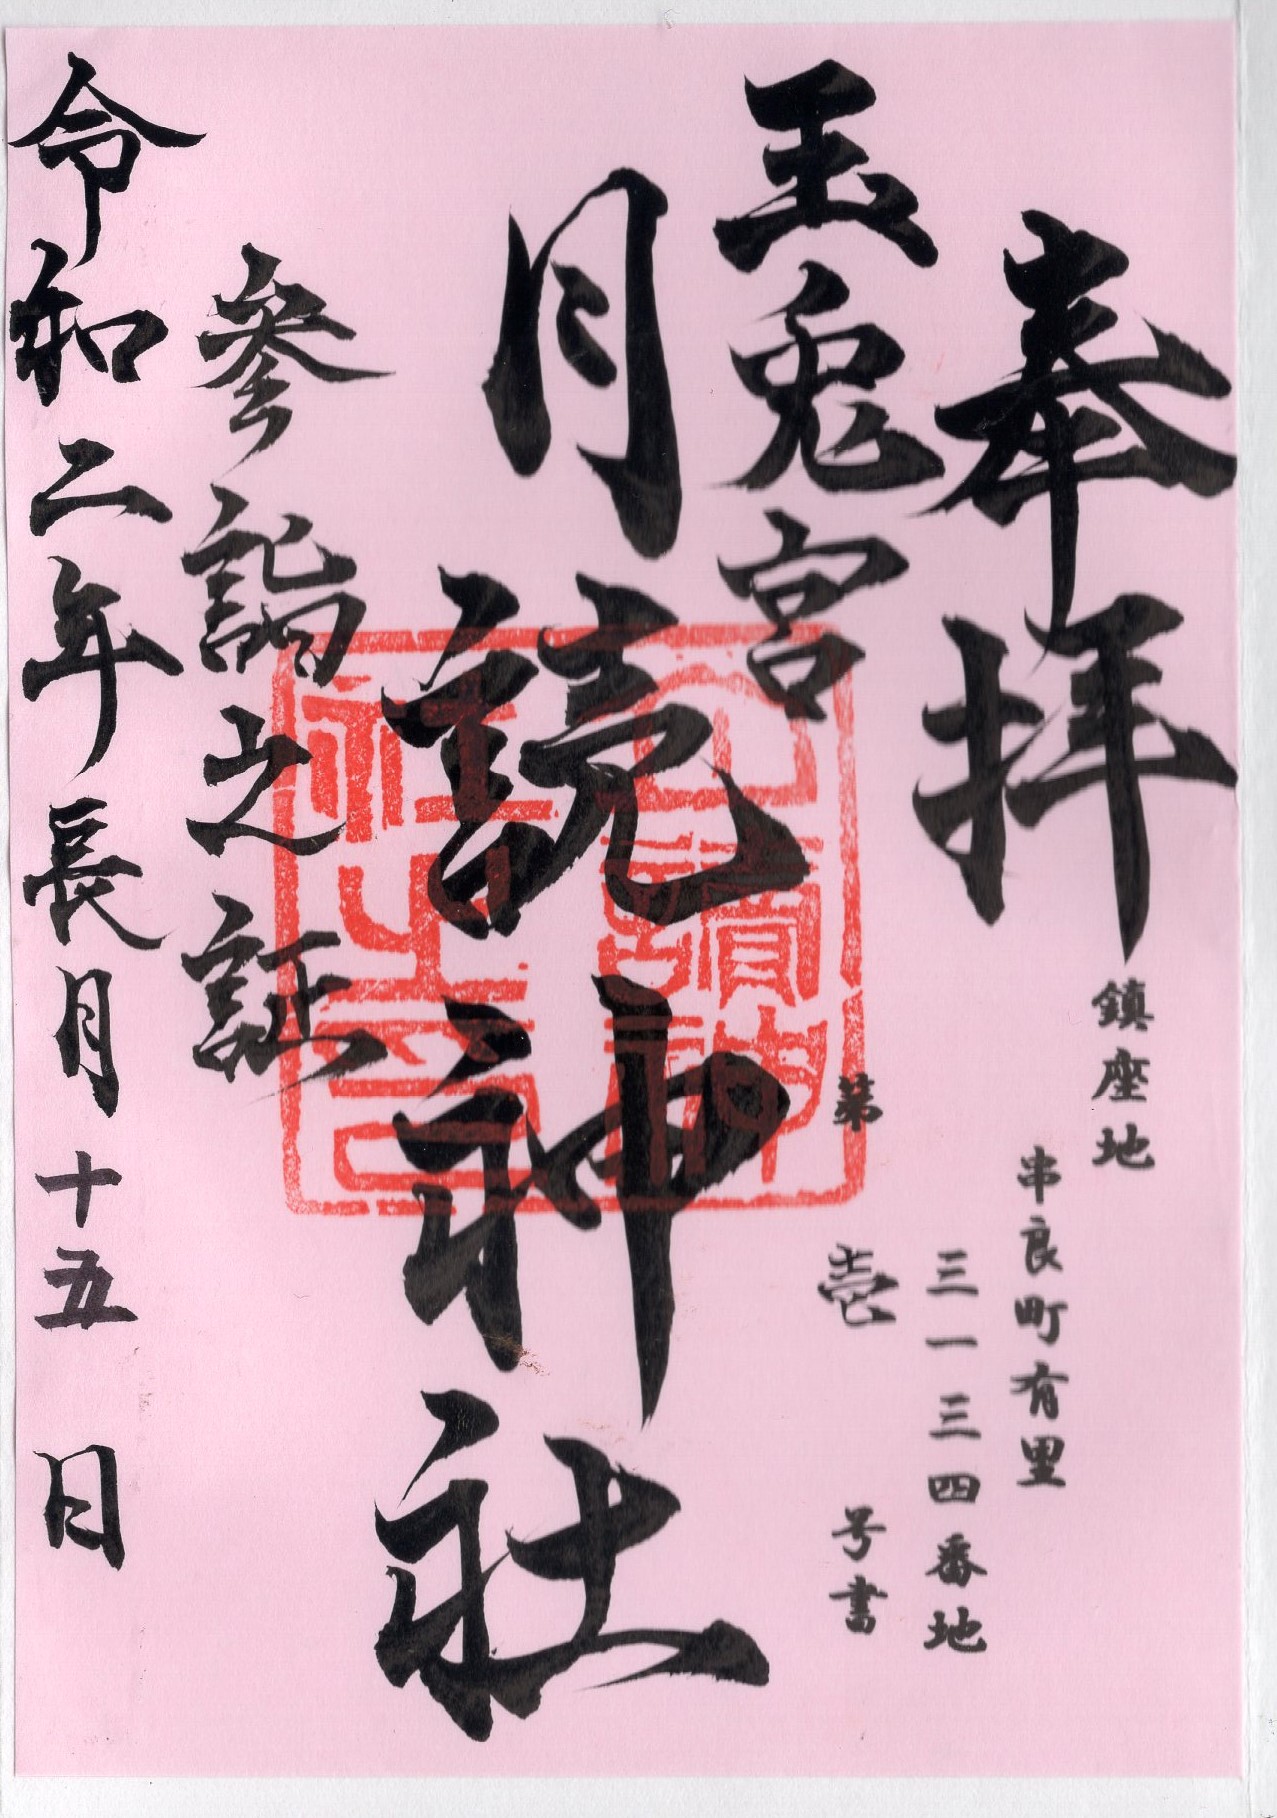 奉拝
鎮座地
串良町有里
三一三四番地
第壱号書
玉兎宮
月読神社
参詣之証
令和二年長月十五日